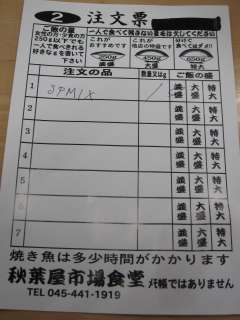 2 注文票
ご飯の量
女性の方・少食の方
250g以下でも
一人で食べきれる
好きなgを書いて
下さい
これが
おすすめ
これが
他店の特盛です
食べては
250g 450g 650g
並盛 大盛 特大
注文の品 数量又はg ご飯の盛
1 JPMIX / 並盛 大盛 特大
2 並盛 大盛 特大
3 並盛 大盛 特大
4 並盛 大盛 特大
5 並盛 大盛 特大
6 並盛 大盛 特大
7 並盛 大盛 特大
焼き魚は多少時間がかかります
秋葉屋市場食堂 ではありません
TEL 045-441-1919